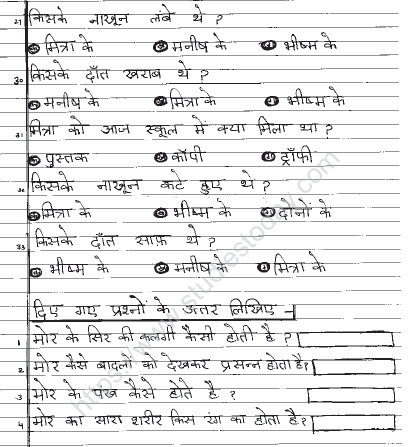 29 किसके नाखून लंबे थे ?
मित्रा के मनीष के भीष्म के
30 किसके दाँत खराब थे ?
मनीष के मित्रा के भीष्म के
31 मित्रा को आज स्कूल में क्या मिला था ?
पुस्तक कॉपी ट्रॉफी
32 किसके नाखून कटे हुए थे ?
मित्रा के भीष्म के दोनों के
33 किसके दाँत साफ़ थे ?
भीष्म के मनीष के मित्रा के
दिए गए प्रश्नों के उतर लिखिए -
1 मोर के सिर की कलगी कैसी होती है ?
2 मोर कैसे बादलों को देखकर प्रसन्न होता है?
3 मोर के पंख कैसे होते है ?
4 मोर का सारा शरीर किस रंग का होता है?
https://www.studiestoday.com